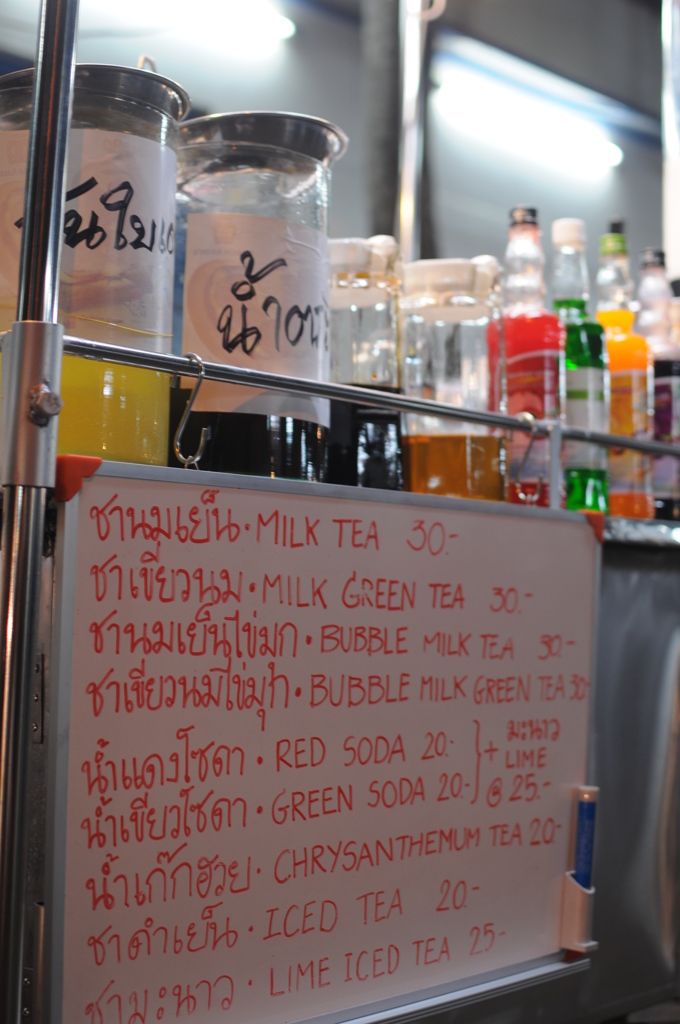 น้ำตา
ชานมเย็น · MILK TEA 30.-
ชาเขียวนม · MILK GREEN TEA 30.-
ชานมเย็นไข่มุก · BUBBLE MILK TEA 30.-
ชาเขียวนมไข่มุก · BUBBLE MILK GREEN TEA 30-
น้ำแดงโซดา · RED SODA 20.-
น้ำเขียวโซดา · GREEN SODA 20.-
+ มะนาว
LIME
@ 25.-
น้ำเก๊กฮวย · CHRYSANTHEMUM TEA 20.-
ชาดำเย็น · ICED TEA 20.-
ชามะนาว · LIME ICED TEA 25-